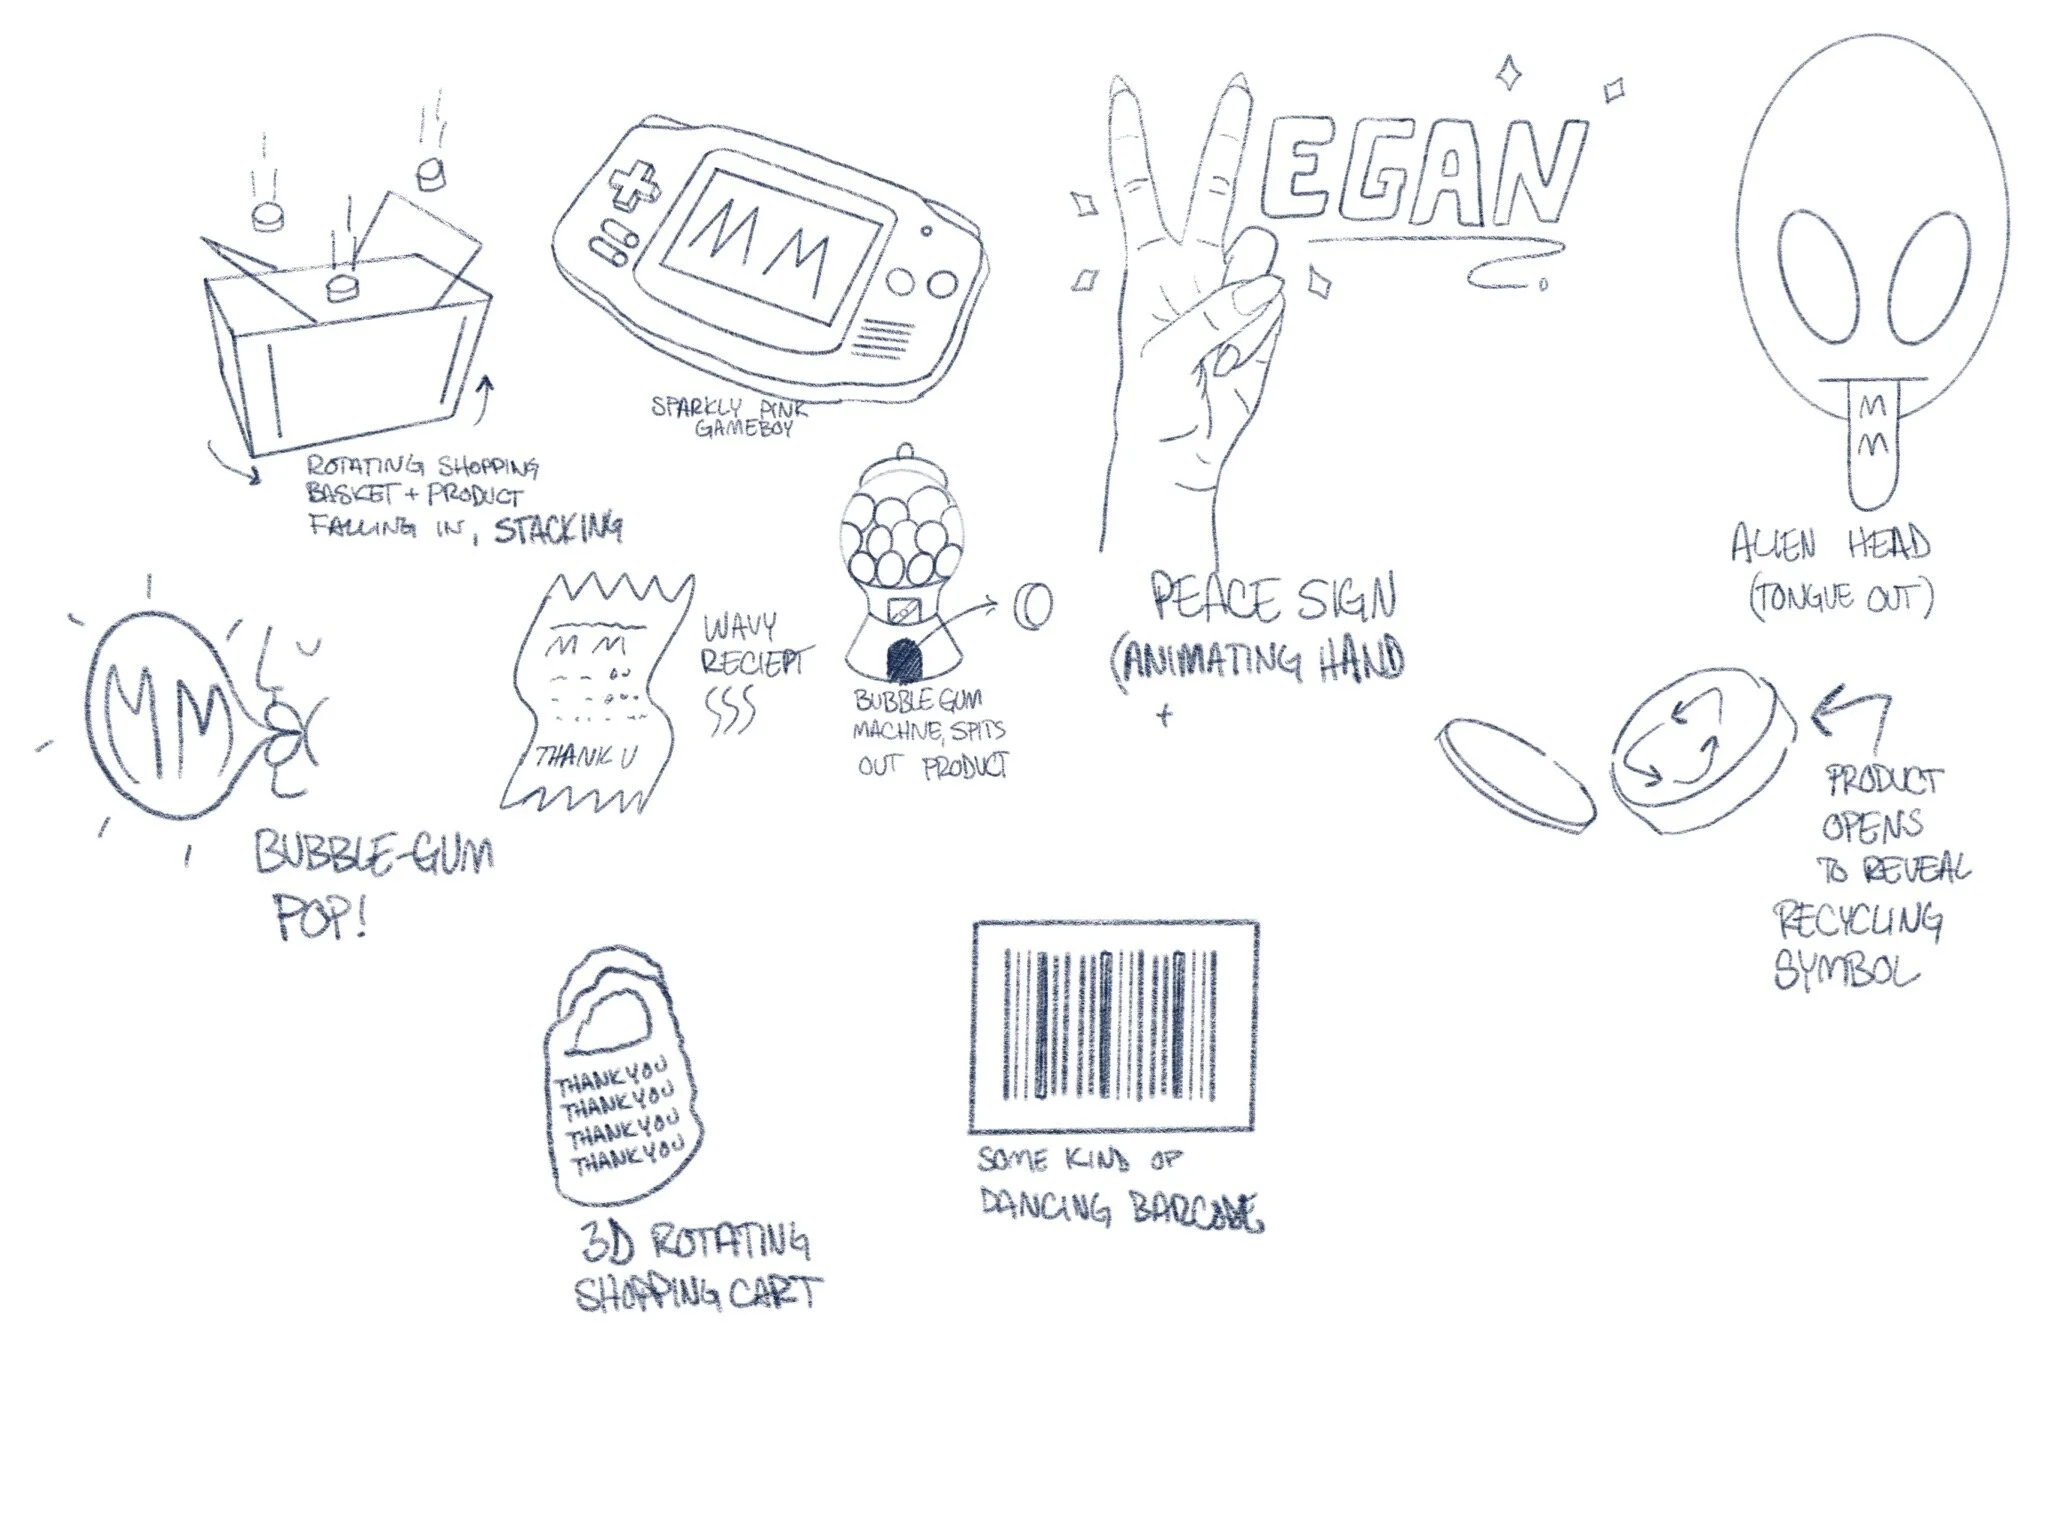 MM
SPARKLY PINK
GAMEBOY
EGAN
M
M
ALIEN HEAD
(TONGUE OUT)
ROTATING SHOPPING
BASKET + PRODUCT
FALLING IN, STACKING
MM
BUBBLE-GUM
POP!
MM
THANK U
WAVY
RECIEPT
BUBBLE GUM
MACHINE, SPITS
OUT PRODUCT
PEACE SIGN
(ANIMATING HAND
+
PRODUCT
OPENS
TO REVEAL
RECYCLING
SYMBOL
THANK YOU
THANK YOU
THANK YOU
THANK YOU
3D ROTATING
SHOPPING CART
SOME KIND OF
DANCING BARCODE